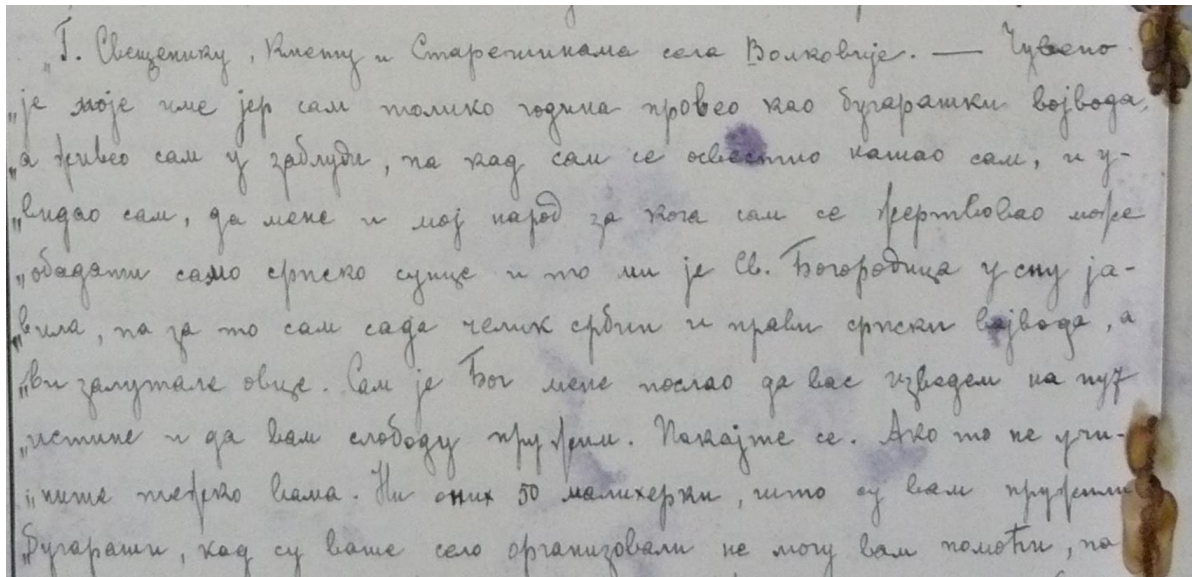 „Г. Свещенику, Кмету и Старешинама села Волковије. — Чувено
„је моје име јер сам толико година провео као бугарашки војвода,
„а живео сам у заблуди, па кад сам се освестио нашао сам, и у-
„видао сам, да мене и мој народ за кога сам се жертвовао може
„обадати само српско сунце и то ми је Св. Богородица у сну ја-
„вила, па за то сам сада челик србин и прави српски војвода, а
„ви залутале овце. Сам је Бог мене послао да вас изведем на пут
„истине и да вам слободу пружим. Покајте се. Ако то не учи-
„ните тешко вама. Ни оних 50 малихерки, што су вам пружили
„Бугараши, кад су ваше село организовали не могу вам помоћи, па